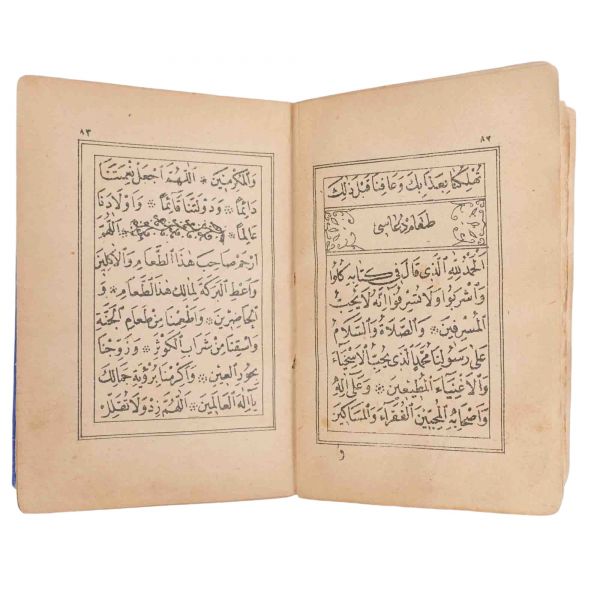 ٨٢
تُهْلِكْنَا بِعَذَابِكَ وَعَافِنَا قَبْلَ ذٰلِكَ
طعام دعاسی
اَلْحَمْدُ لِلّٰهِ الَّذِى قَالَ فِى كِتَابِهِ كُلُوا
وَاشْرَبُوا وَلَا تُسْرِفُوا اِنَّهُ لَا يُحِبُّ
الْمُسْرِفِينَ * وَالصَّلَاةُ وَالسَّلَامُ
عَلَى رَسُولِنَا مُحَمَّدٍ الَّذِى يُحِبُّ الْاَسْخِيَاءَ
وَالْاَغْنِيَاءَ الْمُطِيعِينَ * وَعَلَى اٰلِهِ
وَاَصْحَابِهِ الْمُحِبِّينَ الْفُقَرَاءَ وَالْمَسَاكِينَ
و
٨٣
وَالْمُكْرَمِينَ * اَللّٰهُمَّ اجْعَلْ نِعْمَتَنَا
دَائِمًا * وَدَوْلَتَنَا قَائِمًا * وَاَوْلَادَنَا
عَالِمًا * اَللّٰهُمَّ
ارْحَمْ صَاحِبَ هٰذَا الطَّعَامِ وَالْاٰكِلِينَ
وَاَعْطِ الْبَرَكَةَ لِمَالِكِ هٰذَا الطَّعَامِ * وَ
الْحَاضِرِينَ * وَاَطْعِمْنَا مِنْ طَعَامِ الْجَنَّةِ
وَاسْقِنَا مِنْ شَرَابِ الْكَوْثَرِ * وَزَوِّجْنَا
بِحُورِ الْعِينِ * وَاَكْرِمْنَا بِرُؤْيَةِ جَمَالِكَ
يَا اِلٰهَ الْعَالَمِينَ * اَللّٰهُمَّ زِدْ وَلَا تُقَلِّلْ